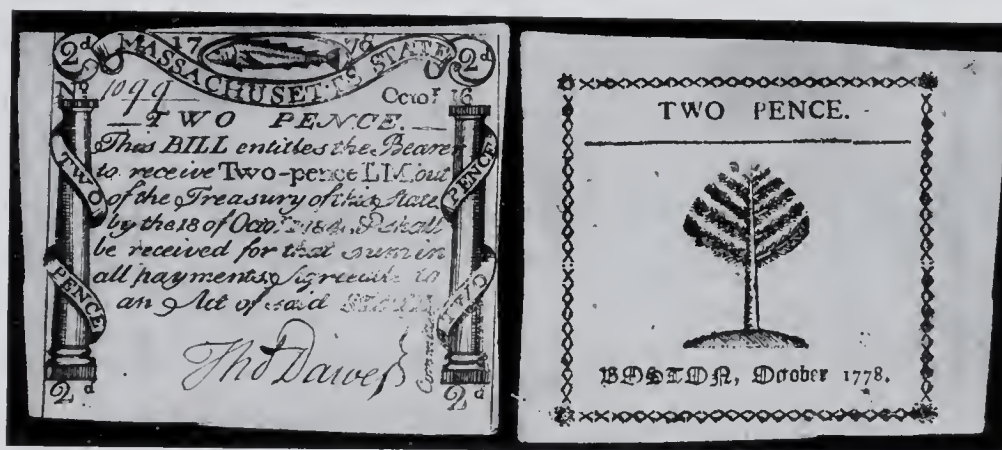 2d 17 78 2d
MASSACHUSETTS STATE
No 1099 Octor. 16
TWO PENCE.
This BILL entitles the Bearer
to receive Two-pence LM. out
of the Treasury of this State
by the 18 of Octor. 1784, & shall
be received for that sum in
all payments, Agreeable to
an Act of said
Thos Dawes
TWO
PENCE
PENCE
TWO
2d 2d
TWO PENCE.
BOSTON, October 1778.